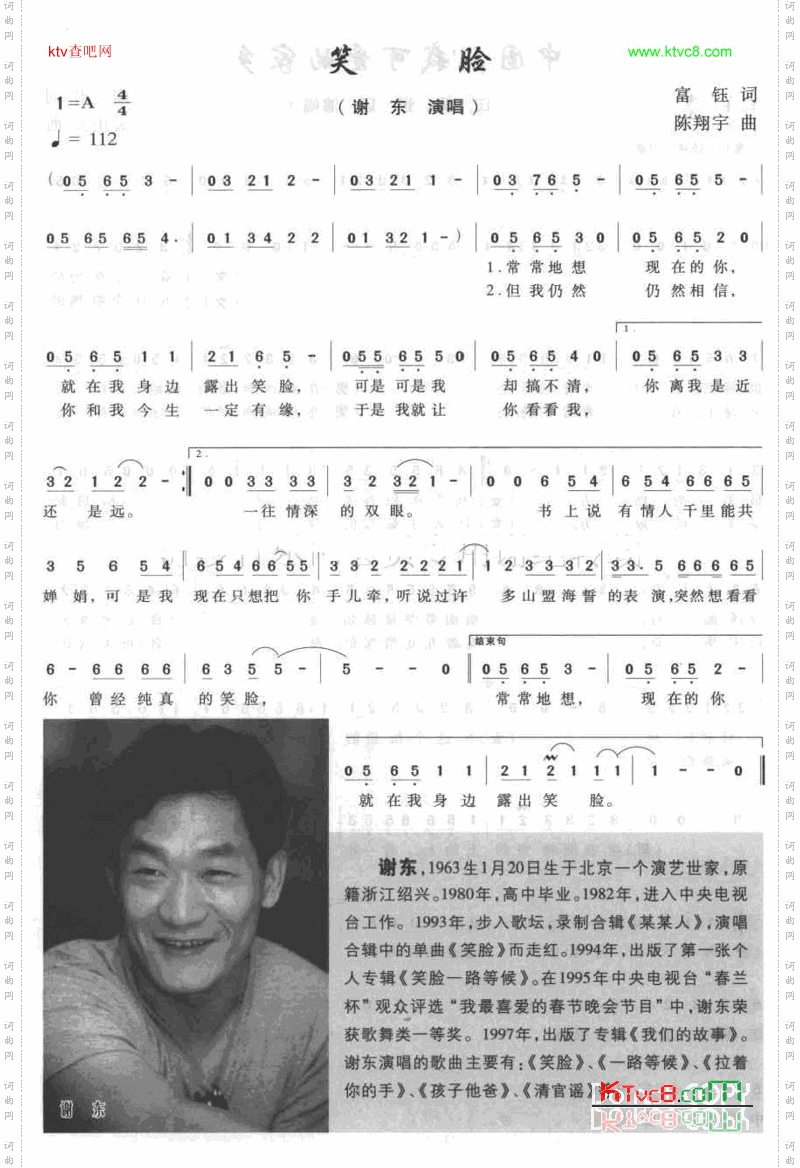 ktv查吧网
www.ktvc8.com
笑 脸
1=A 4/4
(谢 东 演唱)
富 钰 词
♩= 112
陈翔宇 曲
(05 65 3 - | 03 21 2 - | 03 21 1 - | 03 765 - | 05 65 5 - |
05 65 65 4. | 01 34 2 2 | 01 321 - ) | 05 65 3 0 | 05 65 2 0 |
1.常常地想 现在的你,
2.但我仍然 仍然相信,
1.
05 65 1 1 | 21 65 - | 055 65 50 | 05 65 4 0 | 05 65 3 3 |
就在我身边 露出笑脸, 可是可是我 却搞不清, 你离我是近
你和我今生 一定有缘, 于是我就让 你看看我,
2.
32 12 2 - :| 0 0 33 33 | 3 2 321 - | 0 0 6 54 | 654 66665 |
还 是远。 一往情深 的双眼。 书上说 有情人千里能共
3 5 6 54 | 654 66 55 | 3 32 2221 | 12 3332 | 33.5 66665 |
婵娟,可是我 现在只想把 你手儿牵,听说过许 多山盟海誓 的表演,突然想看看
结束句
6 - 66 66 | 635 5 - | 5 - - 0 | 05 65 3 | 05 65 2 - |
你 曾经纯真 的笑脸, 常常地想, 现在的你
05 65 1 1 | 21 21 11 | 1 - - 0 ‖
就在我身边 露出笑 脸。
谢东,1963生1月20日生于北京一个演艺世家,原
籍浙江绍兴。1980年,高中毕业。1982年,进入中央电视
台工作。1993年,步入歌坛,录制合辑《某某人》,演唱
合辑中的单曲《笑脸》而走红。1994年,出版了第一张个
人专辑《笑脸一路等候》。在1995年中央电视台“春兰
杯”观众评选“我最喜爱的春节晚会节目”中,谢东荣
获歌舞类一等奖。1997年,出版了专辑《我们的故事》。
谢东演唱的歌曲主要有:《笑脸》、《一路等候》、《拉着
你的手》、《孩子他爸》、《清官谣》
谢 东
KTvc8.com